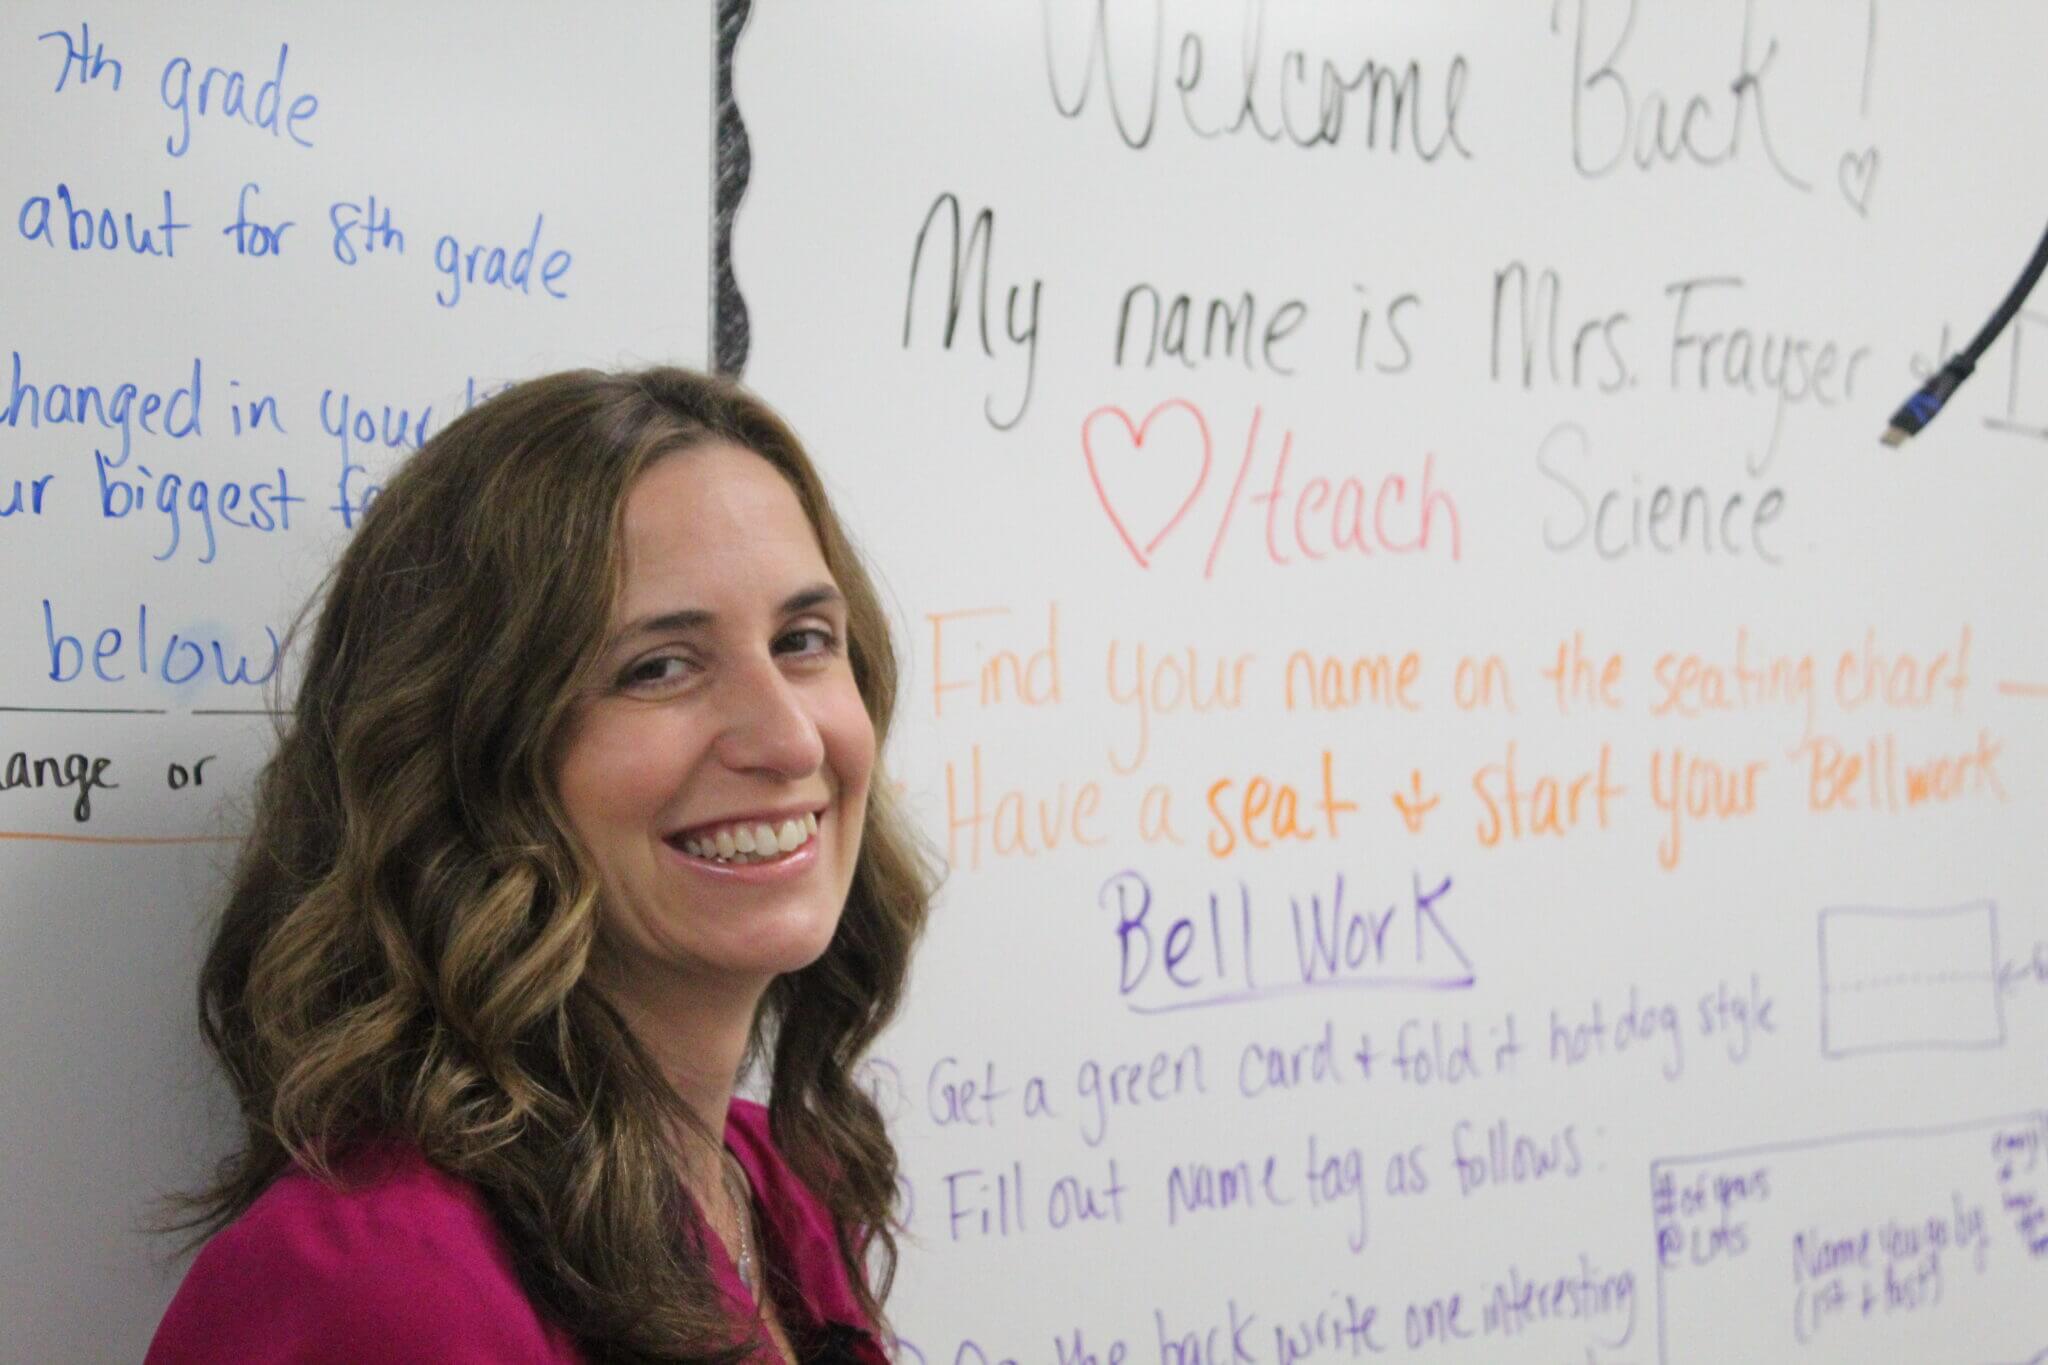 7th grade
about for 8th grade
changed in your
ur biggest
below
ange or
Welcome Back!
My name is Mrs. Frayser & I
♡/teach Science
Find your name on the seating chart —
Have a seat & start your Bellwork
Bell Work
① Get a green card + fold it hotdog style
Fill out name tag as follows:
# of years
@ LMS
Name you go by
(1st + last)
emoji
the back write one interesting